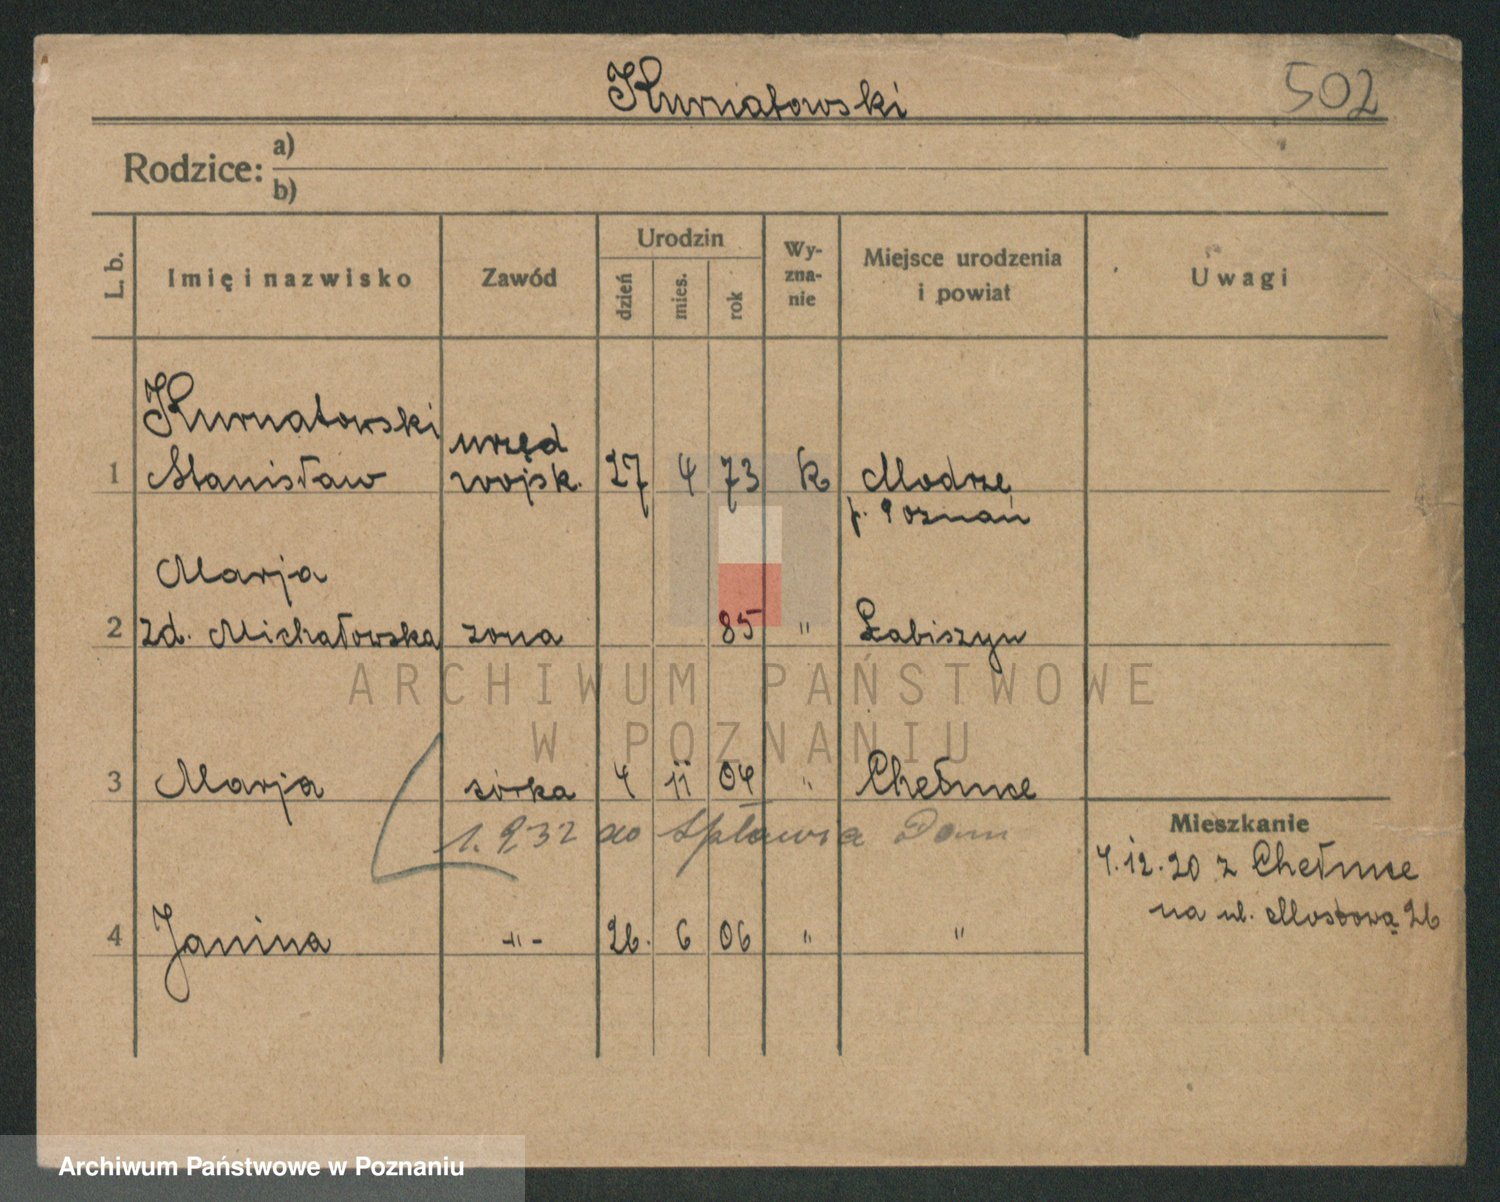 Kurnatowski
502
Rodzice: a)
b)
L. b.
Imię i nazwisko
Zawód
Urodzin
dzień
mies.
rok
Wy-
zna-
nie
Miejsce urodzenia
i powiat
Uwagi
Kurnatowski
urzęd
1 Stanisław wojsk. 27 4 73 k Modrze
p. Poznań
Marja
2 zd. Michałowska żona 85 " Łabiszyn
3 Marja córka 4 11 04 " Chełmce
1. 9.32 do Spławia Dom
4 Janina -"- 26. 6 06 " "
Mieszkanie
4.12.20 z Chełmce
na ul. Mostową 26
ARCHIWUM PAŃSTWOWE
W POZNANIU
Archiwum Państwowe w Poznaniu